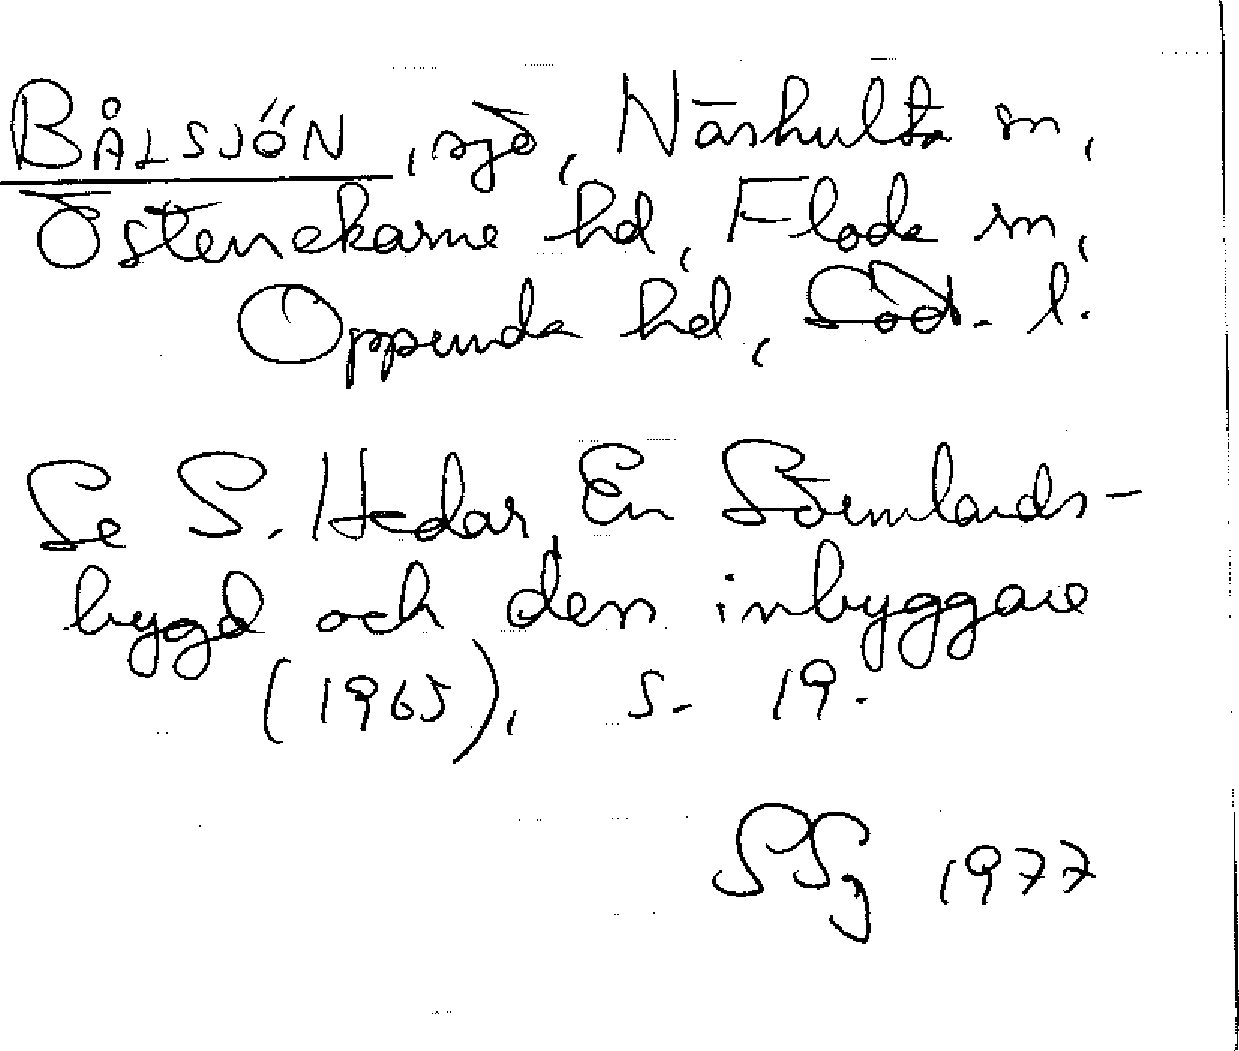 BÅLSJÖN, sjö, Näshulta sn,
Österrekarne hd, Floda sn,
Oppunda hd, Söd. l.
Se S. Hedar, En Sörmlands-
bygd och dess inbyggare
(1965), s. 19.
SSg 1977